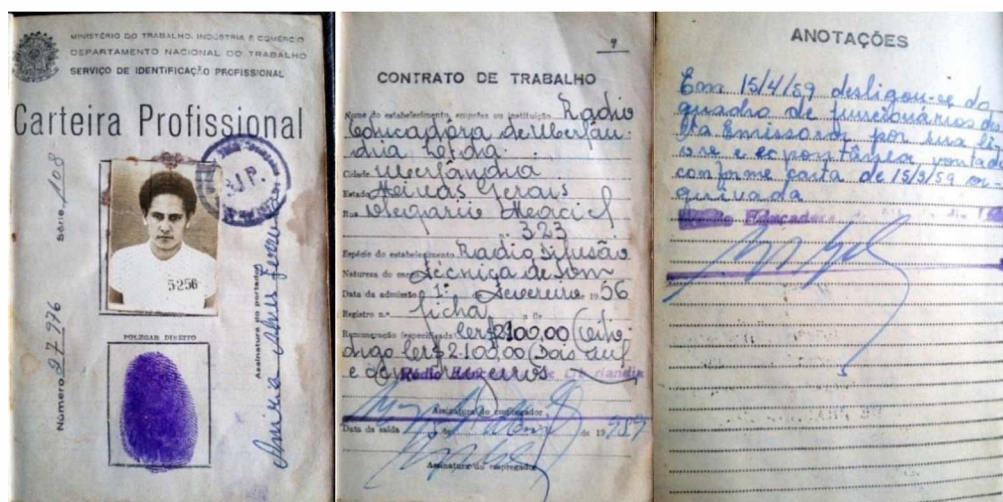 MINISTÉRIO DO TRABALHO, INDÚSTRIA E COMÉRCIO
DEPARTAMENTO NACIONAL DO TRABALHO
SERVIÇO DE IDENTIFICAÇÃO PROFISSIONAL
Carteira Profissional
Série 108
Número 27976
5256
POLEGAR DIREITO
Assinatura do portador
9
CONTRATO DE TRABALHO
Nome do estabelecimento, empresa ou instituição Radio
Educadora de Uberlan-
dia Ltda.
Cidade Uberlândia
Estado Minas Gerais
Rua Olegario Maciel
323
Espécie do estabelecimento Radio Difusão
Natureza do cargo Técnica de Som
Data da admissão 1º Fevereiro 1956
Registro n.º ficha
Remuneração (especificada) Cr$2100,00 (
digo Cr$ 2.100,00 (Dois mil
e cem cruzeiros
Assinatura do empregador
Data da saída de 1959
Assinatura do empregador
ANOTAÇÕES
Em 15/4/59 desligou-se do
quadro de funcionários des
ta Emissora por sua liv
re e espontânea vontade
conforme carta de 15/3/59 ar
quivada
Radio Educadora